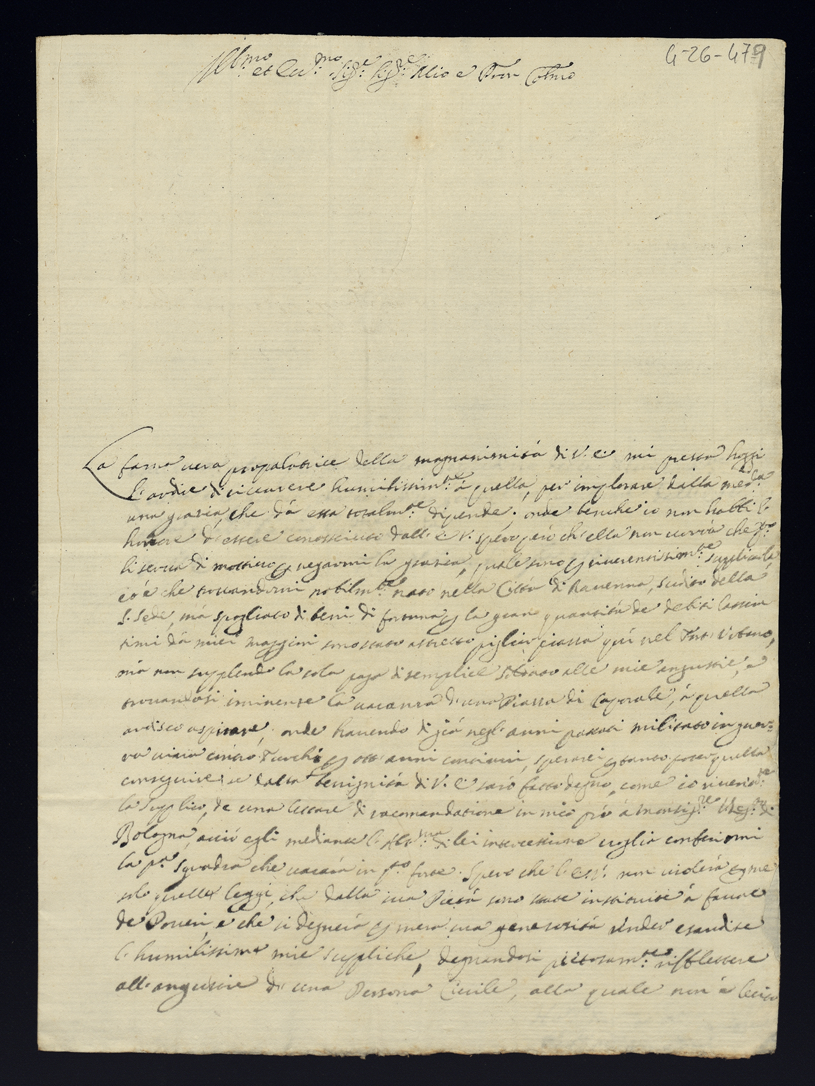 4-26-479
Ill.mo et Ecc.mo Sig.e Sig.e Mio e Pron Colmo
La fama vera propalatrice della magnanimità di V. E. mi presta hoggi
l'ardire di ricorrere humilissim.te à quella, per implorare dalla med.a
una grazia, che dà essa totalm.te dipende; onde benche io non habbi l'
honore di essere conosciuto dall'E. V. spero però ch'ella non vorrà che
li serva di mottivo negarmi la grazia, quale sono riverentissim.te supplicarla
ciò è che trovandomi nobilm.te nato nella Città di Ravenna, suddito della
S. Sede, mà spogliato di beni di fortuna la gran quantità de debiti lassa
timi dà miei maggiori sono stato astretto pigliar piazza quì nel Forte Urbano,
mà non supplendo la sola paga di semplice soldato alle mie angustie, e
trovandosi iminente la vacanza d'una Piazza di Caporale, à quella
ardisco aspirare; onde havendo di già negl'anni passati militato in guer-
ra viva contro Turchi ott'anni continui, sperarei poter quella
conseguire se dalla benignità di V. E. sarò fatto degno, come io riverend.te
la supplico, de una lettera di racomandatione in mio prò à Monsig.re di
Bologna, acciò egli mediante di lei intercessione voglia conferirmi
la p.a squadra che vacarà in q.to forte. Spero che l'E. V. non violerà me
solo quelle leggi, che dalla sua Pietà sono state instituite à favore
de Poveri e che si degnerà mera sua generosità render esaudite
l'humilissime mie suppliche, degnandosi pietosam.te rifflettere
all'angustie di una Persona Civile, alla quale non è lecito